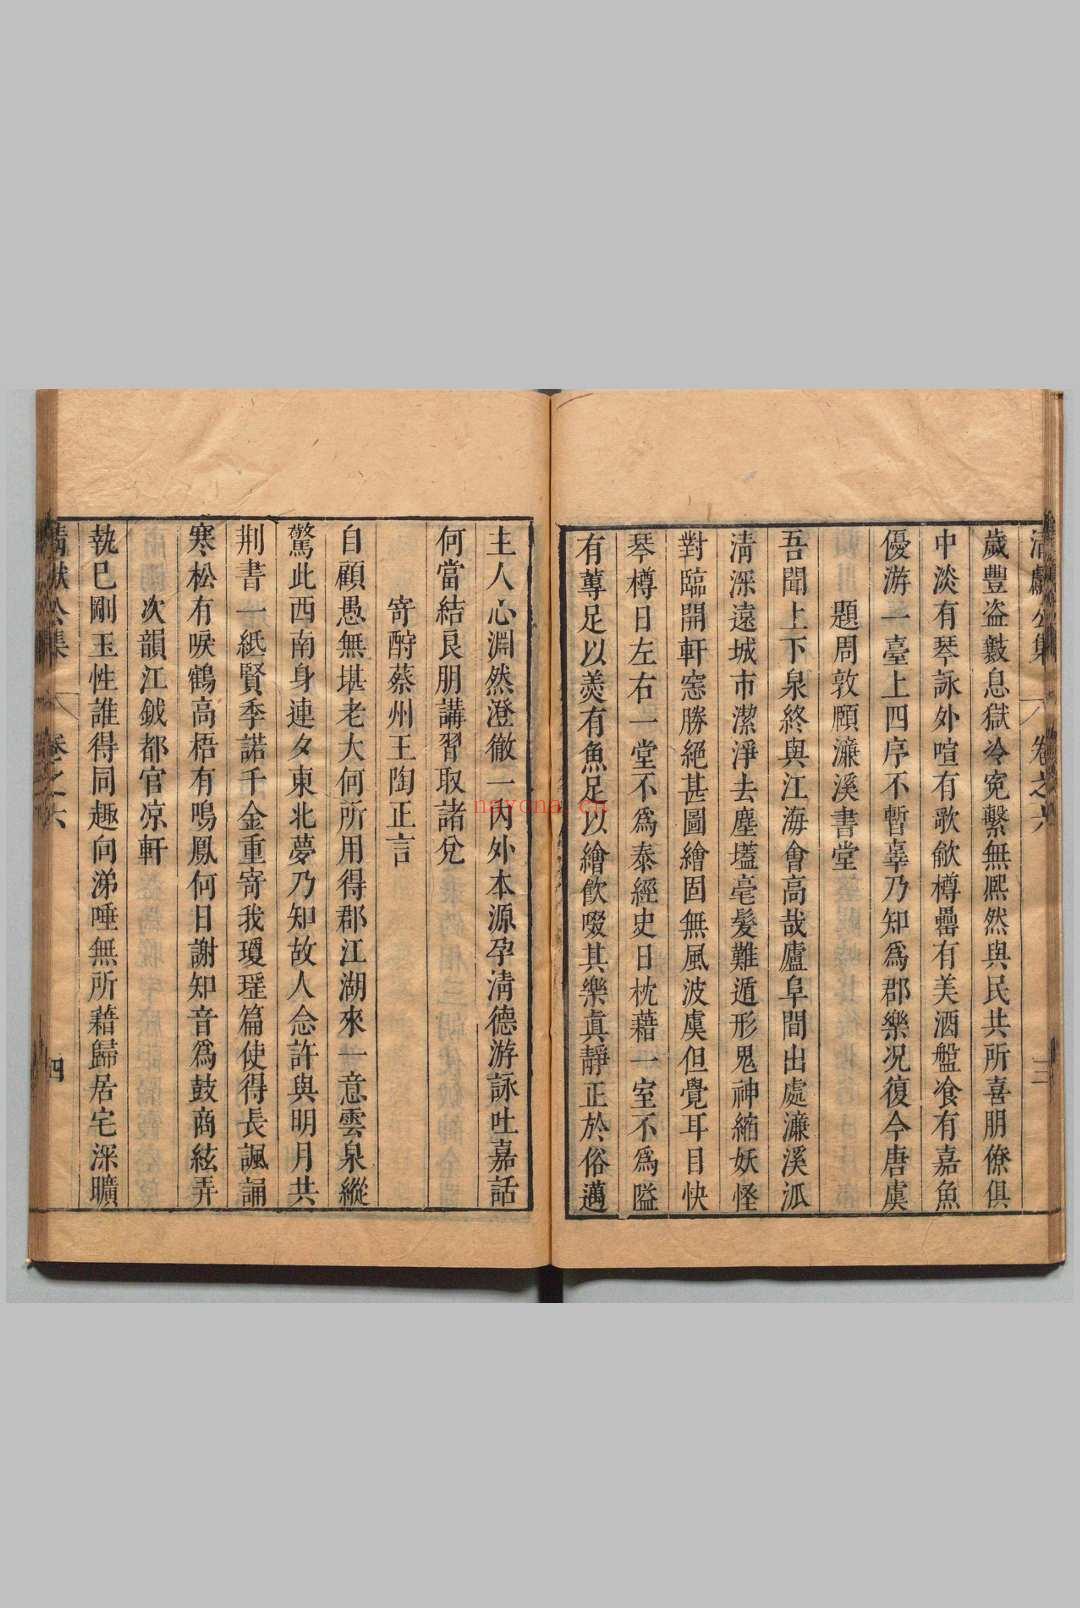 清獻公集 卷之六 三
歲豐盜數息獄冷寃繫無熈然與民共所喜朋僚俱
中淡有琴詠外喧有歌歈樽罍有美酒盤飡有嘉魚
優游一臺上四序不暫辜乃知爲郡樂况復今唐虞
題周敦頤濂溪書堂
吾聞上下泉終與江海會高哉廬阜間出處濂溪派
清深遠城市潔淨去塵壒毫髮難遁形鬼神縮妖怪
對臨開軒窓勝絕甚圖繪固無風波虞但覺耳目快
琴樽日左右一堂不爲泰經史日枕藉一室不爲隘
有蓴足以羮有魚足以繪飲啜其樂眞靜正於俗邁
主人心淵然澄徹一內外本源孕清德游詠吐嘉話
何當結良朋講習取諸兌
寄酧蔡州王陶正言
自顧愚無堪老大何所用得郡江湖來一意雲泉縱
驚此西南身連夕東北夢乃知故人念許與明月共
荆書一紙賢季諾千金重寄我瓊瑤篇使得長諷誦
寒松有唳鶴高梧有鳴鳳何日謝知音爲鼓商絃弄
次韻江鉞都官凉軒
執巳剛玉性誰得同趣向涕唾無所藉歸居宅深曠
清獻公集 卷之六 四
nayona.cn